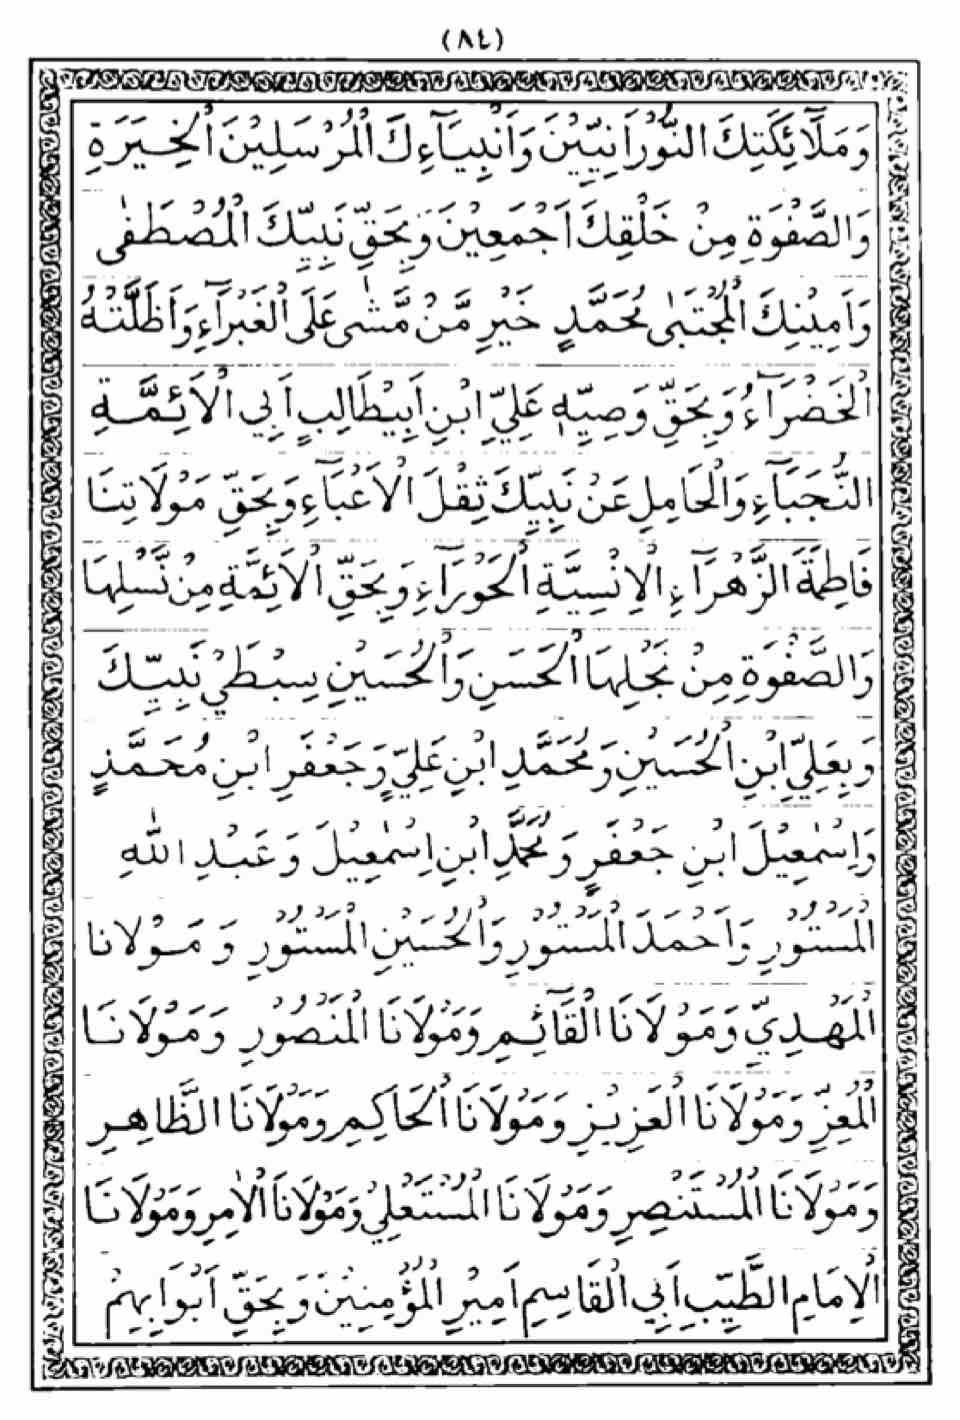 (٨٤)
وَمَلَآئِكَتِكَ النُّوْرَانِيِّيْنَ وَاَنْبِيَآءِكَ الْمُرْسَلِيْنَ الْخِيَرَةِ
وَالصَّفْوَةِ مِنْ خَلْقِكَ اَجْمَعِيْنَ وَبِحَقِّ نَبِيِّكَ الْمُصْطَفٰى
وَاَمِيْنِكَ الْمُجْتَبٰى مُحَمَّدٍ خَيْرِ مَّنْ مَّشٰى عَلَى الْغَبْرَآءِ وَاَظَلَّتْهُ
الْخَضْرَآءُ وَبِحَقِّ وَصِيِّهٖ عَلِيِّ ابْنِ اَبِيْطَالِبٍ اَبِي الْاَئِمَّةِ
النُّجَبَآءِ وَالْحَامِلِ عَنْ نَبِيِّكَ ثِقْلَ الْاَعْبَآءِ وَبِحَقِّ مَوْلَاتِنَا
فَاطِمَةَ الزَّهْرَآءِ الْاِنْسِيَّةِ الْحَوْرَآءِ وَبِحَقِّ الْاَئِمَّةِ مِنْ نَّسْلِهَا
وَالصَّفْوَةِ مِنْ نَجْلِهَا الْحَسَنِ وَالْحُسَيْنِ سِبْطَيْ نَبِيِّكَ
وَبِعَلِيِّ ابْنِ الْحُسَيْنِ وَمُحَمَّدِ ابْنِ عَلِيٍّ وَجَعْفَرِ ابْنِ مُحَمَّدٍ
وَاِسْمٰعِيْلَ ابْنِ جَعْفَرٍ وَمُحَمَّدِ ابْنِ اِسْمٰعِيْلَ وَعَبْدِ اللّٰهِ
الْمَسْتُوْرِ وَاَحْمَدَ الْمَسْتُوْرِ وَالْحُسَيْنِ الْمَسْتُوْرِ وَمَوْلَانَا
الْمَهْدِيِّ وَمَوْلَانَا الْقَآئِمِ وَمَوْلَانَا الْمَنْصُوْرِ وَمَوْلَانَا
الْمُعِزِّ وَمَوْلَانَا الْعَزِيْزِ وَمَوْلَانَا الْحَاكِمِ وَمَوْلَانَا الظَّاهِرِ
وَمَوْلَانَا الْمُسْتَنْصِرِ وَمَوْلَانَا الْمُسْتَعْلِيْ وَمَوْلَانَا الْاٰمِرِ وَمَوْلَانَا
الْاِمَامِ الطَّيِّبِ اَبِي الْقَاسِمِ اَمِيْرِ الْمُؤْمِنِيْنَ وَبِحَقِّ اَبْوَابِهِمْ